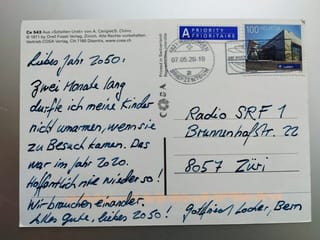 Ce 543 Aus «Schellen-Ursli» von A. Carigiet/S. Chönz
© 1971 by Orell Füssli Verlag, Zürich. Alle Rechte vorbehalten.
Vertrieb COSA Verlag, CH 7180 Disentis, www.cosa.ch
A PRIORITY
PRIORITAIRE
BRIEFZENTRUM
07.05.20-19
100
Liebes Jahr 2050:
Zwei Monate lang
durfte ich meine Kinder
nicht umarmen, wenn sie
zu Besuch kamen. Das
war im Jahr 2020.
Hoffentlich nie wieder so!
Wir brauchen einander.
Alles Gute, liebes 2050!
COSA
Radio SRF 1
Brunnenhofstr. 22
8057 Züri
Gottfried Locher, Bern